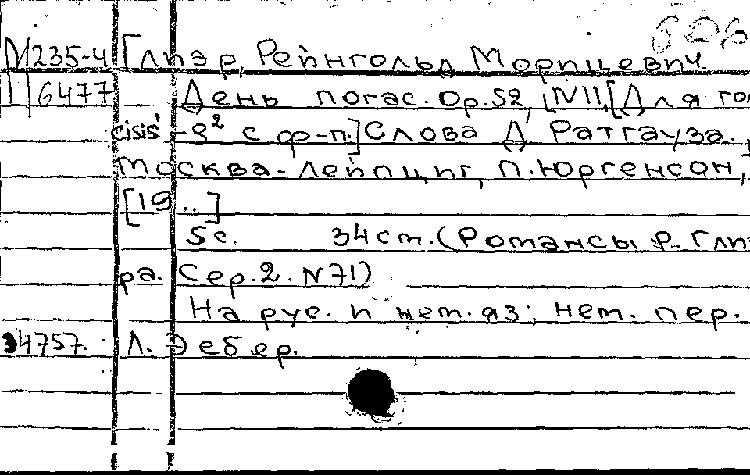 М235-4 Глиэр, Рейнгольд Морицевич.
1 6477 День погас. Op.52, [N11]. [Для гол
cisis¹-g² с ф-п.] Слова Д. Ратгауза.
Москва-Лейпциг, П.Юргенсон,
[19..]
5с. 34см. (Романсы Р. Глиэ
ра. Сер.2. N71)
На рус. и нем. яз; нем. пер.
34757. Л. Эебер.